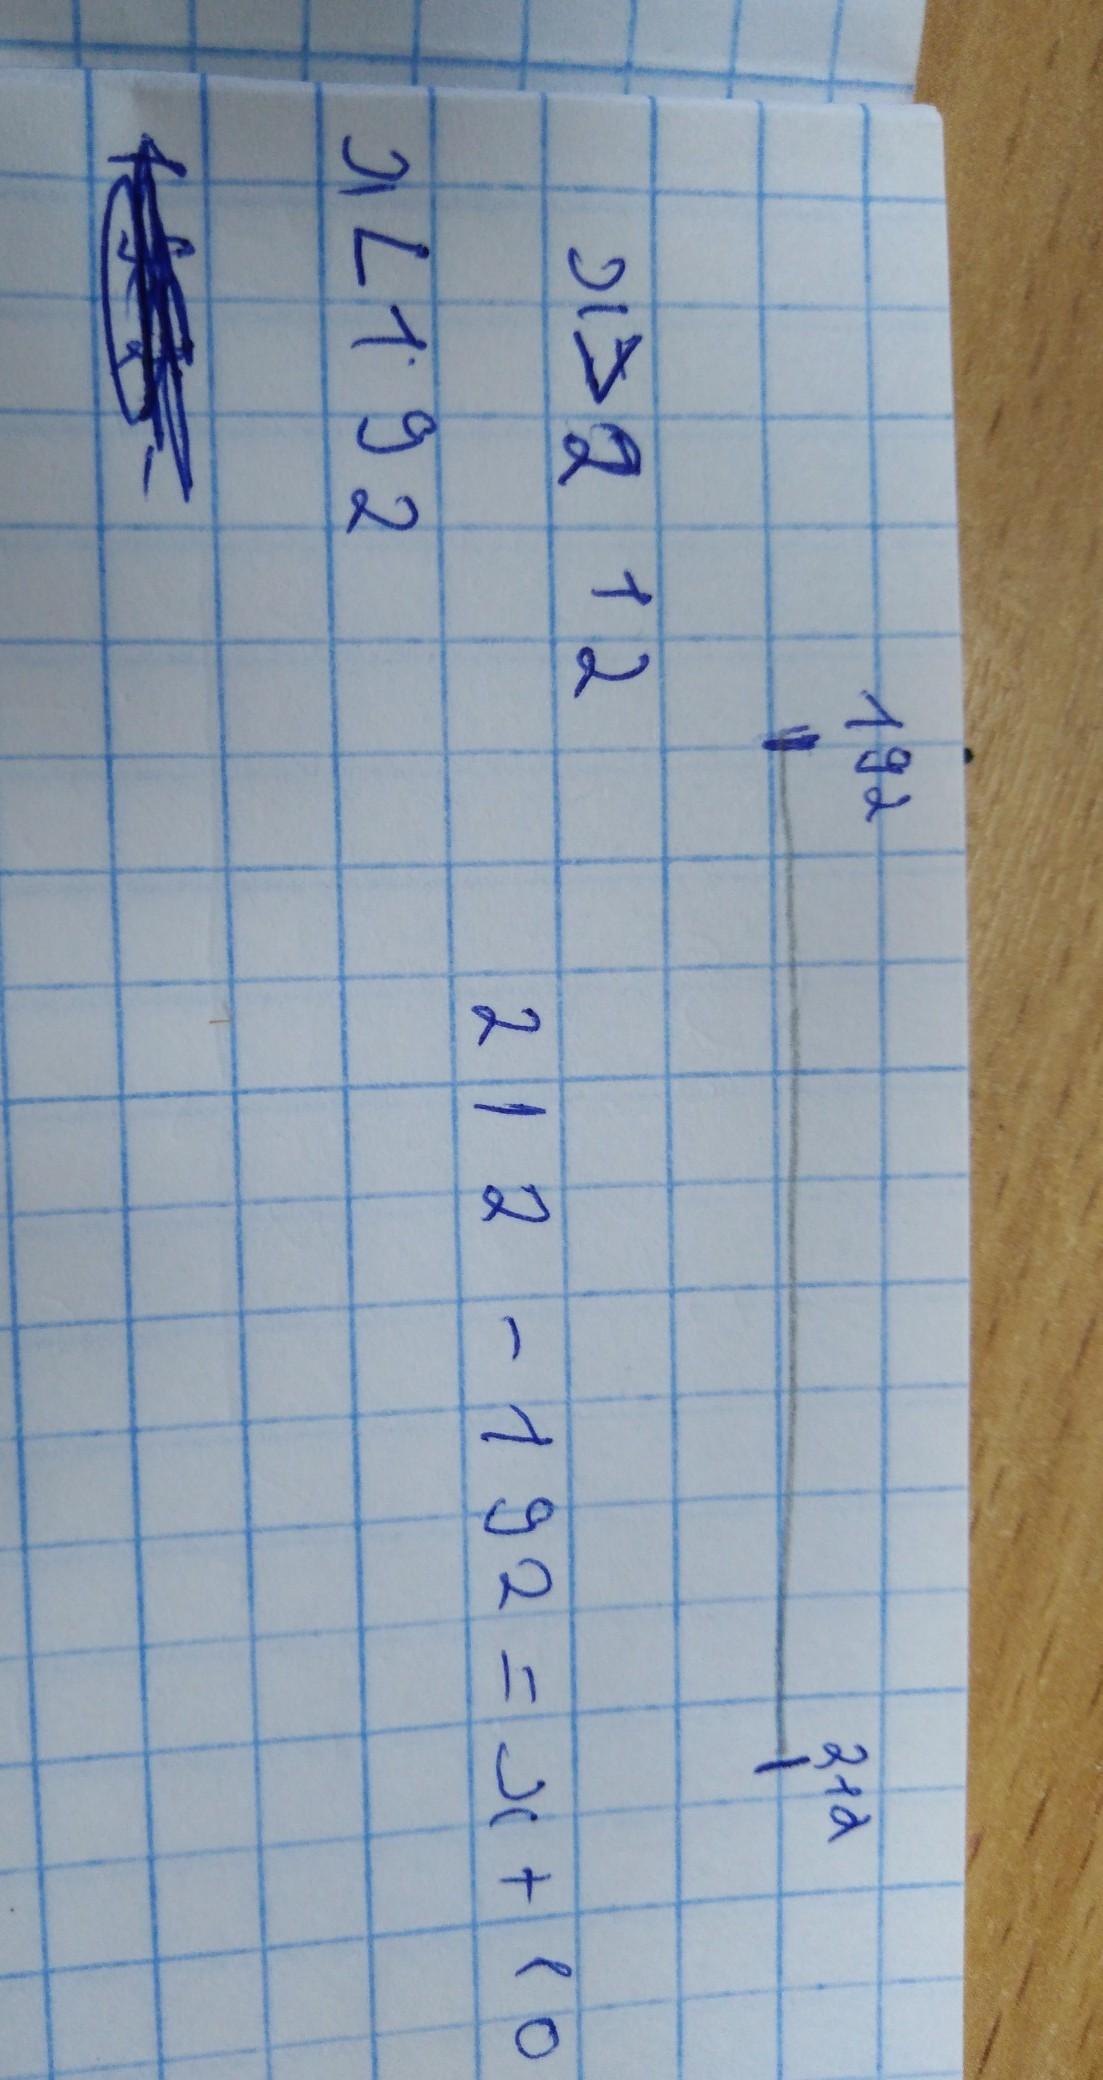 192 212
x > 212
212 - 192 = x + 10
x < 192